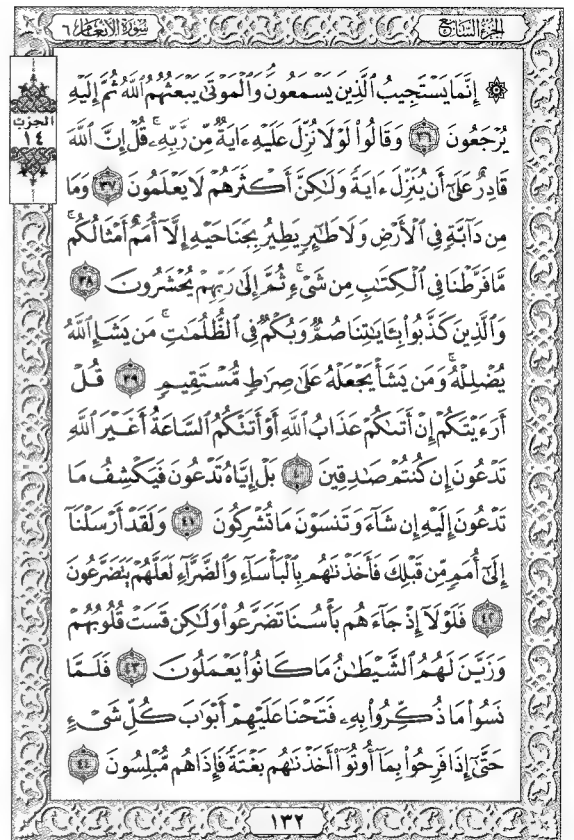 الجزء السابع
سورة الأنعام ٦
الحزب
١٤
۞ إِنَّمَا يَسْتَجِيبُ ٱلَّذِينَ يَسْمَعُونَ وَٱلْمَوْتَىٰ يَبْعَثُهُمُ ٱللَّهُ ثُمَّ إِلَيْهِ
يُرْجَعُونَ ٣٦ وَقَالُوا۟ لَوْلَا نُزِّلَ عَلَيْهِ ءَايَةٌ مِّن رَّبِّهِۦ ۚ قُلْ إِنَّ ٱللَّهَ
قَادِرٌ عَلَىٰٓ أَن يُنَزِّلَ ءَايَةً وَلَـٰكِنَّ أَكْثَرَهُمْ لَا يَعْلَمُونَ ٣٧ وَمَا
مِن دَآبَّةٍ فِى ٱلْأَرْضِ وَلَا طَـٰٓئِرٍ يَطِيرُ بِجَنَاحَيْهِ إِلَّآ أُمَمٌ أَمْثَالُكُم ۚ
مَّا فَرَّطْنَا فِى ٱلْكِتَـٰبِ مِن شَىْءٍ ۚ ثُمَّ إِلَىٰ رَبِّهِمْ يُحْشَرُونَ ٣٨
وَٱلَّذِينَ كَذَّبُوا۟ بِـَٔايَـٰتِنَا صُمٌّ وَبُكْمٌ فِى ٱلظُّلُمَـٰتِ ۗ مَن يَشَإِ ٱللَّهُ
يُضْلِلْهُ وَمَن يَشَأْ يَجْعَلْهُ عَلَىٰ صِرَٰطٍ مُّسْتَقِيمٍ ٣٩ قُلْ
أَرَءَيْتَكُمْ إِنْ أَتَىٰكُمْ عَذَابُ ٱللَّهِ أَوْ أَتَتْكُمُ ٱلسَّاعَةُ أَغَيْرَ ٱللَّهِ
تَدْعُونَ إِن كُنتُمْ صَـٰدِقِينَ ٤٠ بَلْ إِيَّاهُ تَدْعُونَ فَيَكْشِفُ مَا
تَدْعُونَ إِلَيْهِ إِن شَآءَ وَتَنسَوْنَ مَا تُشْرِكُونَ ٤١ وَلَقَدْ أَرْسَلْنَآ
إِلَىٰٓ أُمَمٍ مِّن قَبْلِكَ فَأَخَذْنَـٰهُم بِٱلْبَأْسَآءِ وَٱلضَّرَّآءِ لَعَلَّهُمْ يَتَضَرَّعُونَ
٤٢ فَلَوْلَآ إِذْ جَآءَهُم بَأْسُنَا تَضَرَّعُوا۟ وَلَـٰكِن قَسَتْ قُلُوبُهُمْ
وَزَيَّنَ لَهُمُ ٱلشَّيْطَـٰنُ مَا كَانُوا۟ يَعْمَلُونَ ٤٣ فَلَمَّا
نَسُوا۟ مَا ذُكِّرُوا۟ بِهِۦ فَتَحْنَا عَلَيْهِمْ أَبْوَٰبَ كُلِّ شَىْءٍ
حَتَّىٰٓ إِذَا فَرِحُوا۟ بِمَآ أُوتُوٓا۟ أَخَذْنَـٰهُم بَغْتَةً فَإِذَا هُم مُّبْلِسُونَ ٤٤
١٣٢